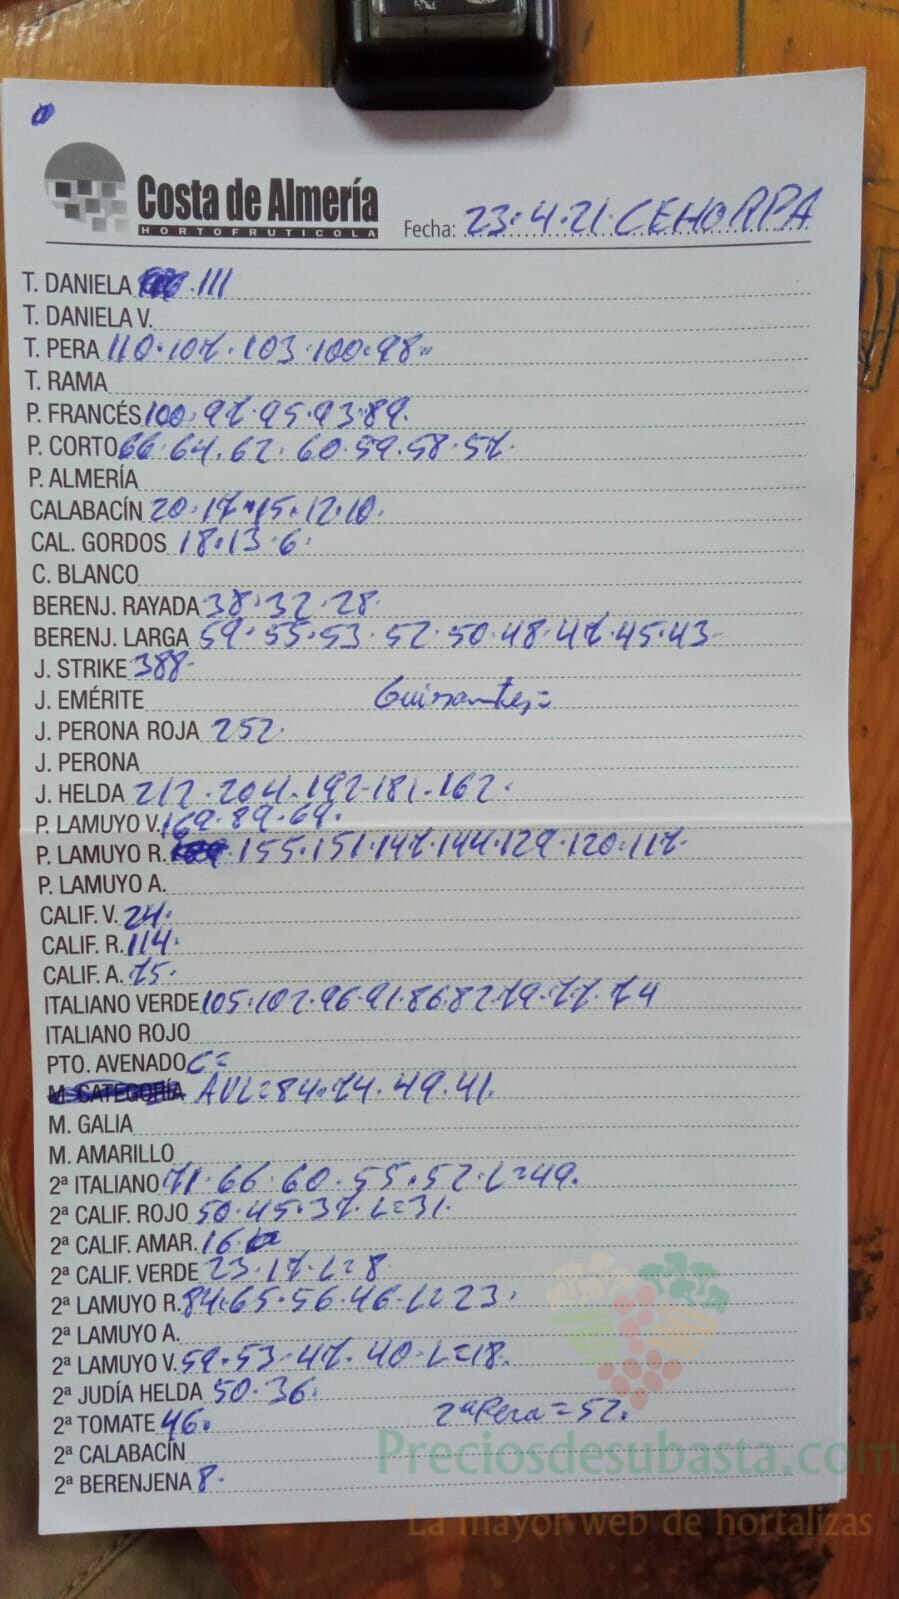 Costa de Almería
HORTOFRUTICOLA
Fecha: 23·4·21 CEHORPA
T. DANIELA ·111
T. DANIELA V.
T. PERA 110·107·103·100·98
T. RAMA
P. FRANCÉS 100·97·95·93·89·
P. CORTO 66·64·62·60·59·58·57·
P. ALMERÍA
CALABACÍN 20·17·15·12·10·
CAL. GORDOS 18·13·6·
C. BLANCO
BERENJ. RAYADA 38·32·28·
BERENJ. LARGA 59·55·53·52·50·48·47·45·43·
J. STRIKE 388·
J. EMÉRITE Guisantes=
J. PERONA ROJA 252·
J. PERONA
J. HELDA 212·204·192·181·162·
P. LAMUYO V. 169·89·69·
P. LAMUYO R. ·155·151·147·144·129·120·117·
P. LAMUYO A.
CALIF. V. 24·
CALIF. R. 114·
CALIF. A. 75·
ITALIANO VERDE 105·102·96·91·86·82·79·77·74
ITALIANO ROJO
PTO. AVENADO C=
M. CATEGORÍA AVL=84·74·49·41·
M. GALIA
M. AMARILLO
2ª ITALIANO 71·66·60·55·52·L=49·
2ª CALIF. ROJO 50·45·37·L=31·
2ª CALIF. AMAR. 16·
2ª CALIF. VERDE 23·17·L=8
2ª LAMUYO R. 84·65·56·46·L=23·
2ª LAMUYO A.
2ª LAMUYO V. 59·53·47·40·L=18·
2ª JUDÍA HELDA 50·36·
2ª TOMATE 46· 2ª Pera=52·
2ª CALABACÍN
2ª BERENJENA 8·
Preciosdesubasta.com
La mayor web de hortalizas